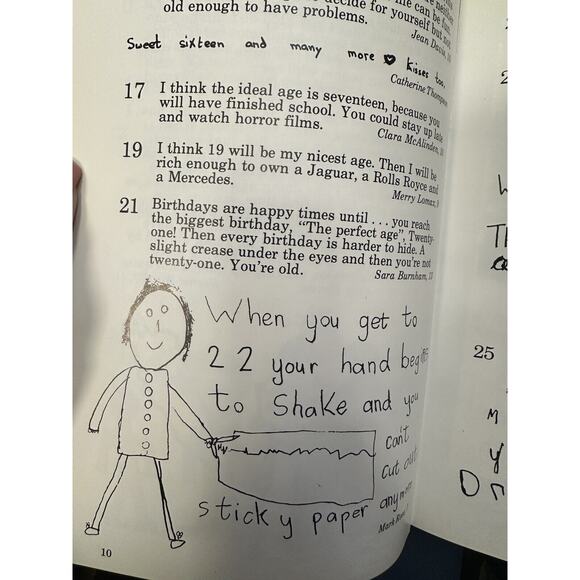 decide for yourself but not
old enough to have problems.
Jean
Sweet sixteen and many more kisses too.
Catherine
17 I think the ideal age is seventeen, because you
will have finished school. You could stay up late
and watch horror films.
Clara McAlinden,
19 I think 19 will be my nicest age. Then I will be
rich enough to own a Jaguar, a Rolls Royce and
a Mercedes.
Merry Lomax, 9
21 Birthdays are happy times until . . . you reach
the biggest birthday, "The perfect age", Twenty-
one! Then every birthday is harder to hide. A
slight crease under the eyes and then you're not
twenty-one. You're old.
Sara Burnham,
When you get to
22 your hand begins
to Shake and you
can't
cut out
sticky paper anymore
Mark
10
25